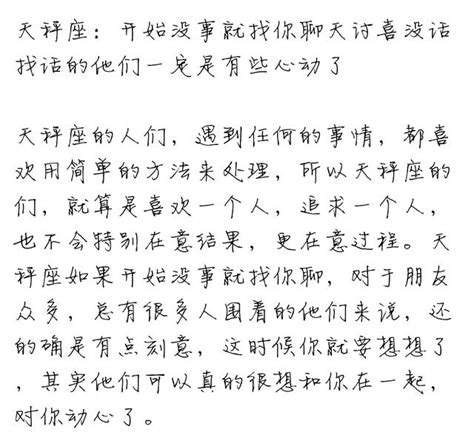 天秤座：开始没事就找你聊天讨喜没话
找话的他们一定是有些心动了
天秤座的人们，遇到任何的事情，都喜
欢用简单的方法来处理，所以天秤座的
们，就算是喜欢一个人，追求一个人，
也不会特别在意结果，更在意过程。天
秤座如果开始没事就找你聊，对于朋友
众多，总有很多人围着的他们来说，还
的确是有点刻意，这时候你就要想想了
，其实他们可以真的很想和你在一起，
对你动心了。